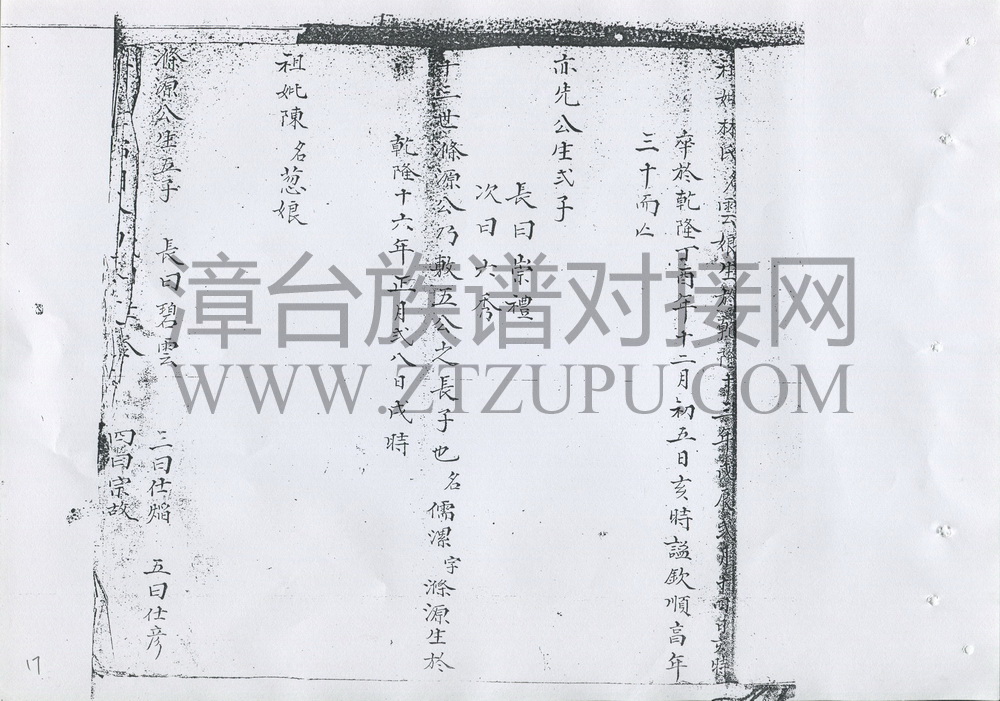 林氏名雲娘生於乾隆十三年戊辰
卒於乾隆丁酉年十二月初五日亥時謚欽順高年
三十而亡
亦先公生弍子
長曰崇禮
次曰六秀
十三世滌源公乃敷五公之長子也名儒漯字滌源生於
乾隆十六年正月弍八日戌時
祖妣陳名葱娘
滌源公生五子
長曰碧雲
三曰仕焰
五曰仕彦
四曰宗故
漳台族谱对接网
WWW.ZTZUPU.COM
17